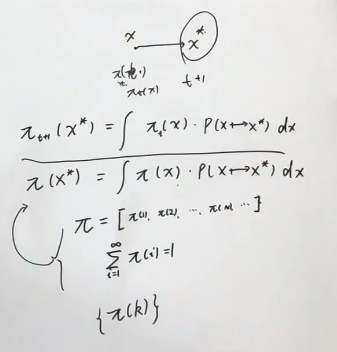 x x*
π_t(x) t+1
π_{t+1}(x*) = ∫ π_t(x) · P(x↦x*) dx
π(x*) = ∫ π(x) · P(x↦x*) dx
π = [π(1), π(2), ⋯, π(n), ⋯]
∑_{i=1}^{∞} π(i) = 1
{π(k)}